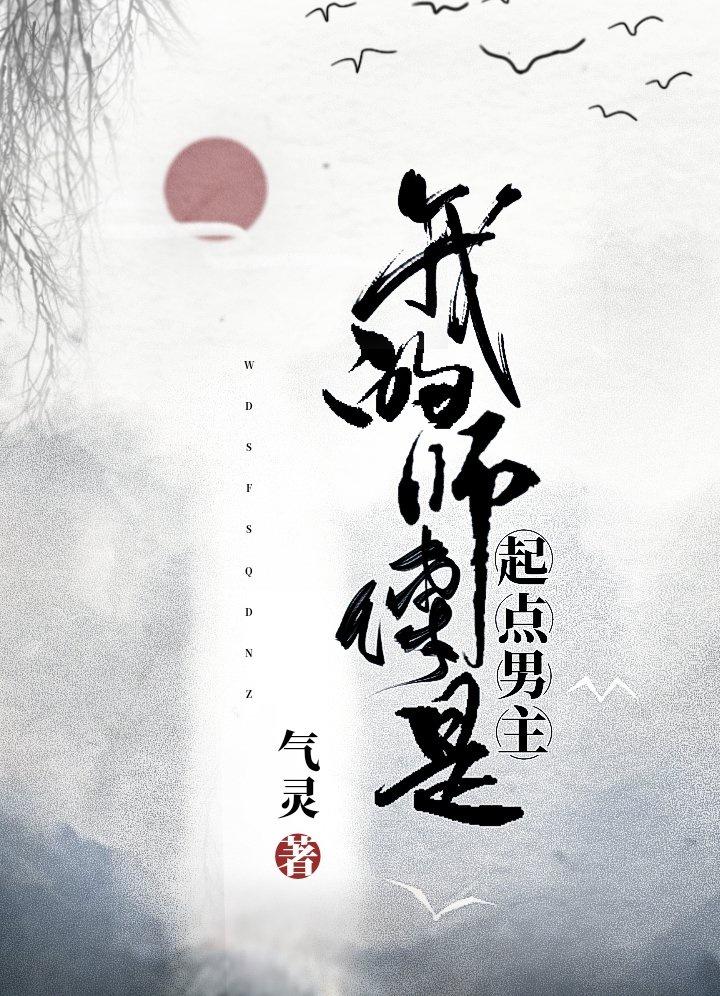 我的师傅是
起点男主
WDSFSQDNZ
气灵著